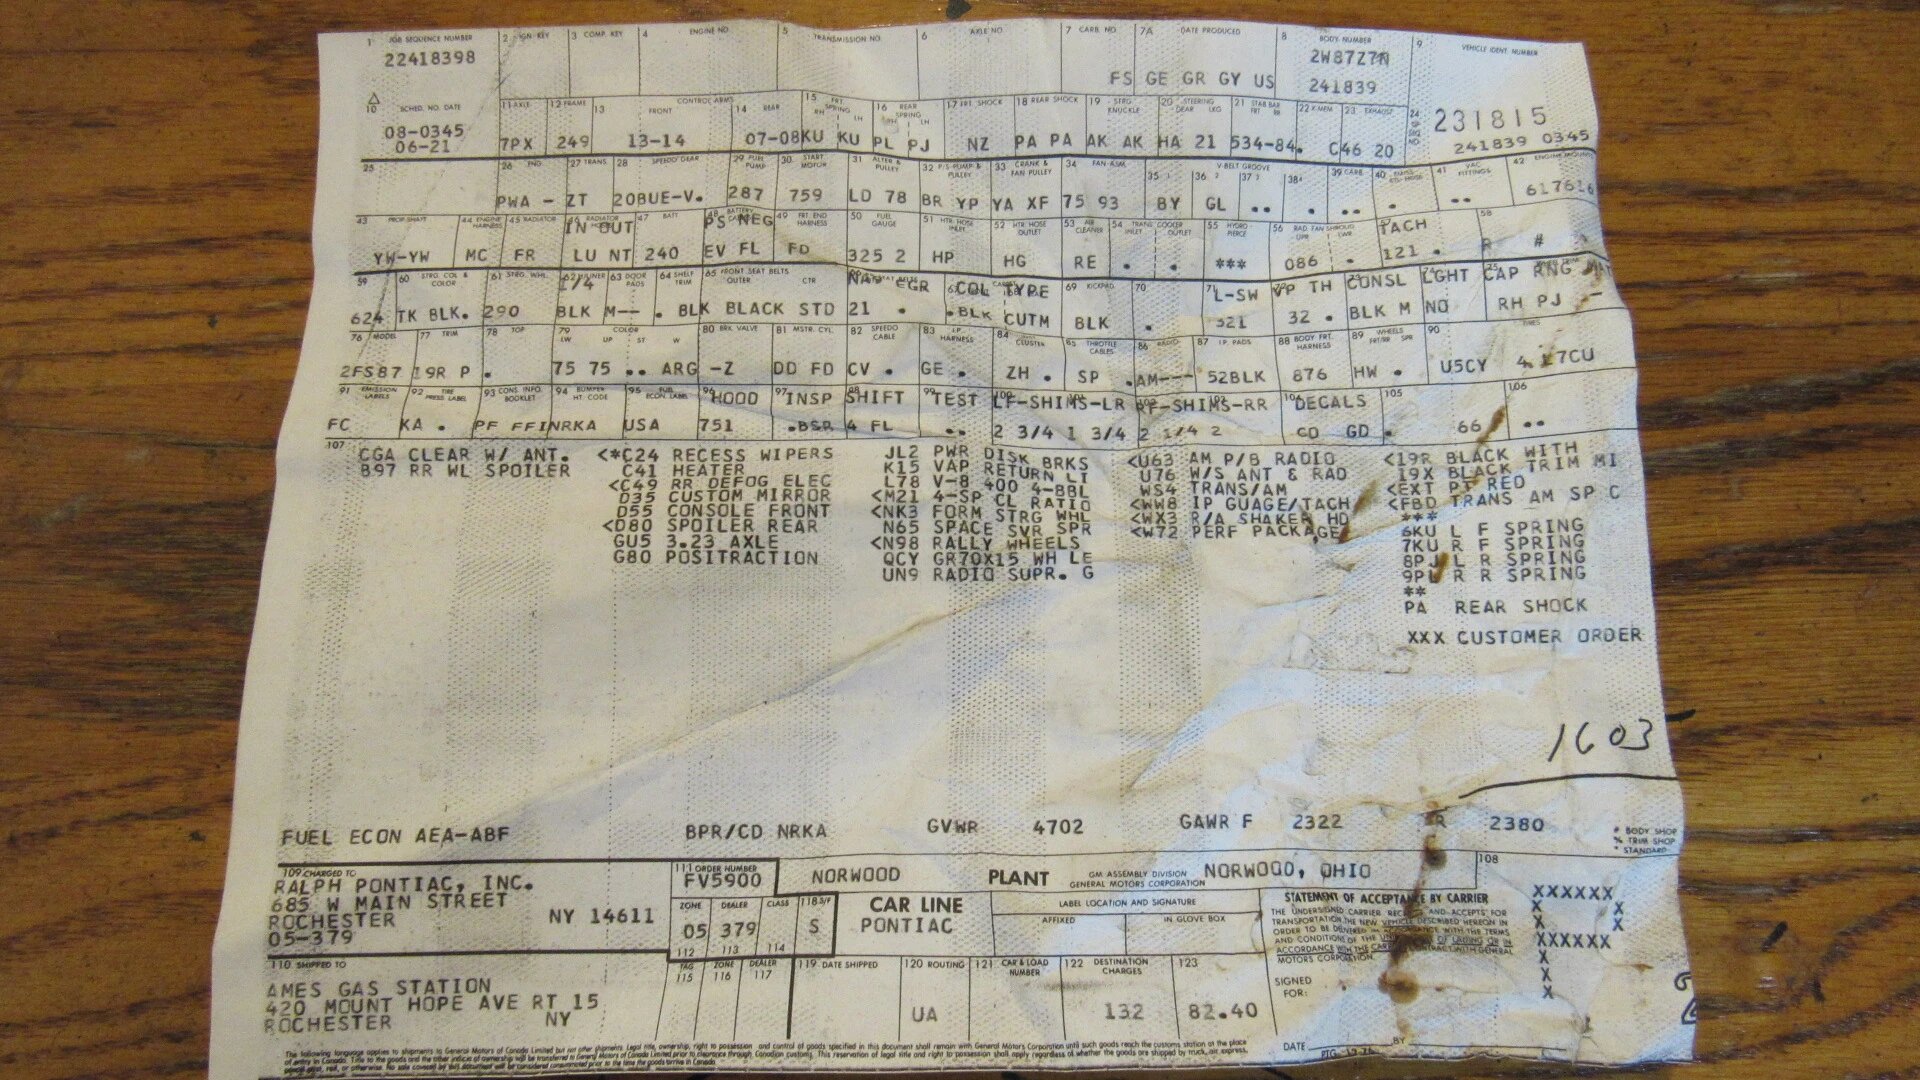 1 JOB SEQUENCE NUMBER 3 COMP. KEY 4 ENGINE NO. 5 TRANSMISSION NO. 6 AXLE NO. 7 CARB. NO. 7A DATE PRODUCED 8 BODY NUMBER 9 VEHICLE IDENT. NUMBER
22418398 2W87Z7N
FS GE GR GY US 241839
10 SCHED. NO. DATE 11 AXLE 12 FRAME 13 CONTROL ARMS FRONT 14 REAR 15 FRT. SPRING RH LH 16 REAR SPRING RH LH 17 FRT. SHOCK 18 REAR SHOCK 19 STRG. KNUCKLE 20 STEERING GEAR LKG 21 STAB BAR FRT RR 22 X-MEM 23 EXHAUST 24
231815
08-0345 241839 0345
06-21 7PX 249 13-14 07-08KU KU PL PJ NZ PA PA AK AK HA 21 534-84. C46 20
25 26 ENG. 27 TRANS. 28 SPEEDO GEAR 29 FUEL PUMP 30 START MOTOR 31 ALTER & PULLEY 32 P/S PUMP & PULLEY 33 CRANK & FAN PULLEY 34 FAN-ASM. V-BELT GROOVE 35 36 37 38 39 CARB. 40 41 VAC FITTINGS 42 ENGINE MOUNTS
PWA - ZT 20BUE-V. 287 759 LD 78 BR YP YA XF 75 93 BY GL .. . .. . .. 617616
43 PROP. SHAFT 44 ENGINE HARNESS 45 RADIATOR 46 RADIATOR IN OUT 47 BATT. 48 BATTERY PS NEG 49 FRT END HARNESS 50 FUEL GAUGE 51 HTR. HOSE INLET 52 HTR HOSE OUTLET 53 AIR CLEANER 54 TRANS COOLER INLET OUTLET 55 HYDRO-PIERCE 56 RAD. FAN SHROUD UPR LWR 57 TACH 58
YW-YW MC FR LU NT 240 EV FL FD 325 2 HP HG RE . . *** 086 . 121 . R #
59 60 STRG. COL & COLOR 61 STRG. WHL. 62 174 63 DOOR PADS 64 SHELF TRIM 65 FRONT SEAT BELTS OUTER CTR NAV EGR COL TYPE 69 KICKPAD 70 71 L-SW VP TH CONSL LGHT CAP RNG
624 TK BLK. 290 BLK M-- . BLK BLACK STD 21 . .BLK CUTM BLK . 321 32 . BLK M NO RH PJ -
76 MODEL 77 TRIM 78 TOP 79 COLOR LW UP ST W 80 BRK VALVE 81 MSTR. CYL. 82 SPEEDO CABLE 83 I.P. HARNESS 84 CLUSTER 85 THROTTLE CABLES 86 RADIO 87 I.P. PADS 88 BODY FRT. HARNESS 89 WHEELS FRT/RR SPR 90 TIRES
2FS87 19R P . 75 75 .. ARG -Z DD FD CV . GE . ZH . SP .AM--- 52BLK 876 HW . U5CY 4 17CU
91 EMISSION LABELS 92 TIRE PRESS LABEL 93 CONS. INFO. BOOKLET 94 BUMPER HT. CODE 95 FUEL ECON. LABEL 96 HOOD 97 INSP 98 SHIFT 99 TEST LF-SHIMS-LR RF-SHIMS-RR 104 DECALS 105 106
FC KA . PF FFINRKA USA 751 .BSR 4 FL .. 2 3/4 1 3/4 2 1/4 2 CD GD . 66 ..
107
CGA CLEAR W/ ANT.
B97 RR WL SPOILER
<*C24 RECESS WIPERS
C41 HEATER
<C49 RR DEFOG ELEC
D35 CUSTOM MIRROR
D55 CONSOLE FRONT
<D80 SPOILER REAR
GU5 3.23 AXLE
G80 POSITRACTION
JL2 PWR DISK BRKS
K15 VAP RETURN LI
L78 V-8 400 4-BBL
<M21 4-SP CL RATIO
<NK3 FORM STRG WHL
N65 SPACE SVR SPR
<N98 RALLY WHEELS
QCY GR70X15 WH LE
UN9 RADIO SUPR. G
<U63 AM P/B RADIO
U76 W/S ANT & RAD
WS4 TRANS/AM
<WW8 IP GUAGE/TACH
<WX3 R/A SHAKER HD
<W72 PERF PACKAGE
<19R BLACK WITH
19X BLACK TRIM MI
<EXT PT RED
<FBD TRANS AM SP C
***
6KU L F SPRING
7KU R F SPRING
8PJ L R SPRING
9PL R R SPRING
**
PA REAR SHOCK
XXX CUSTOMER ORDER
1603
FUEL ECON AEA-ABF BPR/CD NRKA GVWR 4702 GAWR F 2322 R 2380
# BODY SHOP
% TRIM SHOP
* STANDARD
109 CHARGED TO
RALPH PONTIAC, INC.
685 W MAIN STREET
ROCHESTER NY 14611
05-379
111 ORDER NUMBER
FV5900
ZONE DEALER CLASS 118 S/F
05 379 S
112 113 114
NORWOOD PLANT GM ASSEMBLY DIVISION NORWOOD, OHIO
GENERAL MOTORS CORPORATION
CAR LINE
PONTIAC
LABEL LOCATION AND SIGNATURE
AFFIXED IN GLOVE BOX
STATEMENT OF ACCEPTANCE BY CARRIER
MOTORS CORPORATION.
SIGNED
FOR:
DATE BY
108
XXXXXX
X X
X X
XXXXXX
X
X
X
110 SHIPPED TO
AMES GAS STATION
420 MOUNT HOPE AVE RT 15
ROCHESTER NY
TAG ZONE DEALER
115 116 117
119 DATE SHIPPED 120 ROUTING 121 CAR & LOAD NUMBER 122 DESTINATION CHARGES 123
UA 132 82.40
The following language applies to shipments to General Motors of Canada Limited but not other shipments. Legal title, ownership, right to possession and control of goods specified in this document shall remain with General Motors Corporation until such goods reach the customs station at the place
of entry in Canada. Title to the goods and the other indicia of ownership will be transferred to General Motors of Canada Limited prior to clearance through Canadian customs. This reservation of legal title and right to possession shall apply regardless of whether the goods are shipped by truck, air express,